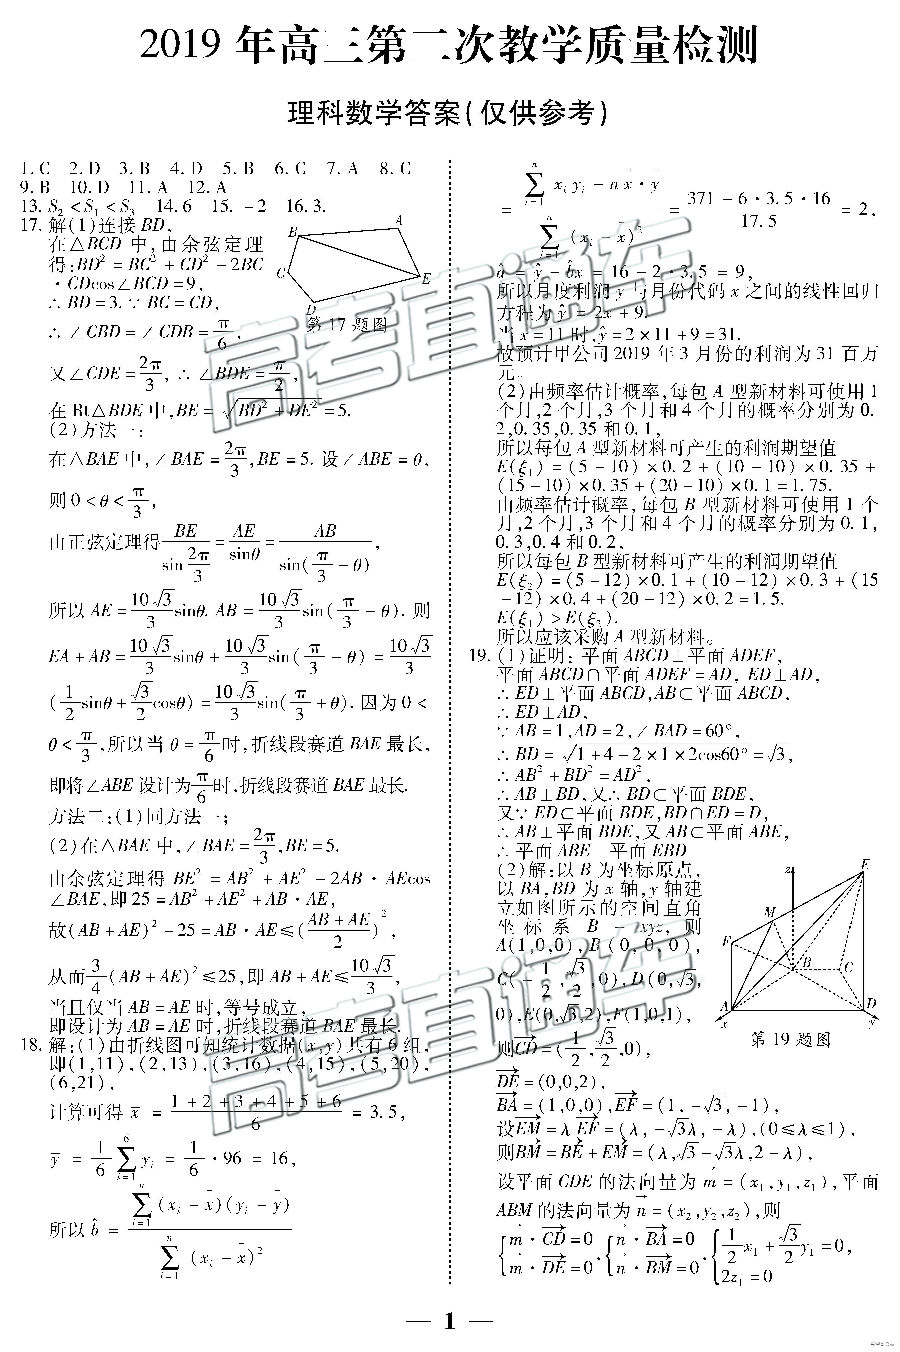 2019 年高三第二次教学质量检测
理科数学答案(仅供参考)
1. C 2. D 3. B 4. D 5. B 6. C 7. A 8. C
9. B 10. D 11. A 12. A
13. S₂ < S₁ < S₃ 14. 6 15. −2 16. 3.
17. 解(1)连接 BD,
在△BCD 中,由余弦定理
得:BD² = BC² + CD² − 2BC
·CDcos∠BCD = 9,
∴ BD = 3. ∵ BC = CD,
∴ ∠CBD = ∠CDB = π/6,
又∠CDE = 2π/3, ∴ ∠BDE = π/2,
在 Rt△BDE 中,BE = √(BD² + DE²) = 5.
A
B
C
D
E
第 17 题图
(2)方法一:
在△BAE 中,∠BAE = 2π/3, BE = 5. 设∠ABE = θ,
则 0 < θ < π/3,
由正弦定理得 BE/sin(2π/3) = AE/sinθ = AB/sin(π/3 − θ),
所以 AE = 10√3/3 sinθ. AB = 10√3/3 sin(π/3 − θ). 则
EA + AB = 10√3/3 sinθ + 10√3/3 sin(π/3 − θ) = 10√3/3
(1/2 sinθ + √3/2 cosθ) = 10√3/3 sin(π/3 + θ). 因为 0 <
θ < π/3,所以当 θ = π/6 时,折线段赛道 BAE 最长,
即将∠ABE 设计为 π/6 时,折线段赛道 BAE 最长.
方法二:(1)同方法一;
(2)在△BAE 中,∠BAE = 2π/3, BE = 5.
由余弦定理得 BE² = AB² + AE² − 2AB · AEcos
∠BAE,即 25 = AB² + AE² + AB · AE,
故(AB + AE)² − 25 = AB · AE ≤ ((AB + AE)/2)²,
从而 3/4 (AB + AE)² ≤ 25,即 AB + AE ≤ 10√3/3,
当且仅当 AB = AE 时,等号成立,
即设计为 AB = AE 时,折线段赛道 BAE 最长.
18. 解:(1)由折线图可知统计数据(x,y)共有 6 组,
即(1,11),(2,13),(3,16),(4,15),(5,20),
(6,21),
计算可得 x̄ = (1 + 2 + 3 + 4 + 5 + 6)/6 = 3.5,
ȳ = 1/6 ∑_{i=1}^{6} yᵢ = 1/6 · 96 = 16,
所以 b̂ = ∑_{i=1}^{n} (xᵢ − x̄)(yᵢ − ȳ) / ∑_{i=1}^{n} (xᵢ − x̄)²
= (∑_{i=1}^{n} xᵢyᵢ − n x̄ · ȳ) / ∑_{i=1}^{n} (xᵢ − x̄)² = (371 − 6 · 3.5 · 16)/17.5 = 2,
â = ŷ − b̂x = 16 − 2 · 3.5 = 9,
所以月度利润 y 与月份代码 x 之间的线性回归
方程为 ŷ = 2x + 9.
当 x = 11 时,ŷ = 2 × 11 + 9 = 31.
故预计甲公司 2019 年 3 月份的利润为 31 百万
元。
(2)由频率估计概率,每包 A 型新材料可使用 1
个月,2 个月,3 个月和 4 个月的概率分别为 0.
2,0.35,0.35 和 0.1,
所以每包 A 型新材料可产生的利润期望值
E(ξ₁) = (5 − 10) × 0.2 + (10 − 10) × 0.35 +
(15 − 10) × 0.35 + (20 − 10) × 0.1 = 1.75.
由频率估计概率,每包 B 型新材料可使用 1 个
月,2 个月,3 个月和 4 个月的概率分别为 0.1,
0.3,0.4 和 0.2,
所以每包 B 型新材料可产生的利润期望值
E(ξ₂) = (5 − 12) × 0.1 + (10 − 12) × 0.3 + (15
− 12) × 0.4 + (20 − 12) × 0.2 = 1.5.
E(ξ₁) > E(ξ₂).
所以应该采购 A 型新材料。
19. (1)证明: 平面 ABCD⊥平面 ADEF,
平面 ABCD∩平面 ADEF = AD, ED⊥AD,
∴ ED⊥平面 ABCD,AB⊂平面 ABCD,
∴ ED⊥AD,
∵ AB = 1,AD = 2,∠BAD = 60°,
∴ BD = √(1 + 4 − 2 × 1 × 2cos60°) = √3,
∴ AB² + BD² = AD²,
∴ AB⊥BD,又∴ BD⊂平面 BDE,
又∵ ED⊂平面 BDE,BD∩ED = D,
∴ AB⊥平面 BDE,又 AB⊂平面 ABE,
∴ 平面 ABE 平面 EBD
(2)解:以 B 为坐标原点,
以 BA,BD 为 x 轴,y 轴建
立如图所示的空间直角
坐标系 B − xyz, 则
A(1,0,0),B(0,0,0),
C(−1/2, √3/2, 0),D(0,√3,
0),E(0,√3,2),F(1,0,1),
z
E
M
F
B
C
A
D
x
y
第 19 题图
则CD→ = (1/2, √3/2, 0),
DE→ = (0,0,2),
BA→ = (1,0,0),EF→ = (1, −√3, −1),
设EM→ = λEF→ = (λ, −√3λ, −λ),(0≤λ≤1),
则BM→ = BE→ + EM→ = (λ,√3 − √3λ,2 − λ),
设平面 CDE 的法向量为 m→ = (x₁,y₁,z₁),平面
ABM 的法向量为 n→ = (x₂,y₂,z₂),则
{m→ · CD→ = 0, m→ · DE→ = 0, {n→ · BA→ = 0, n→ · BM→ = 0, {1/2 x₁ + √3/2 y₁ = 0, 2z₁ = 0
高考直通车
高考直通车
— 1 —